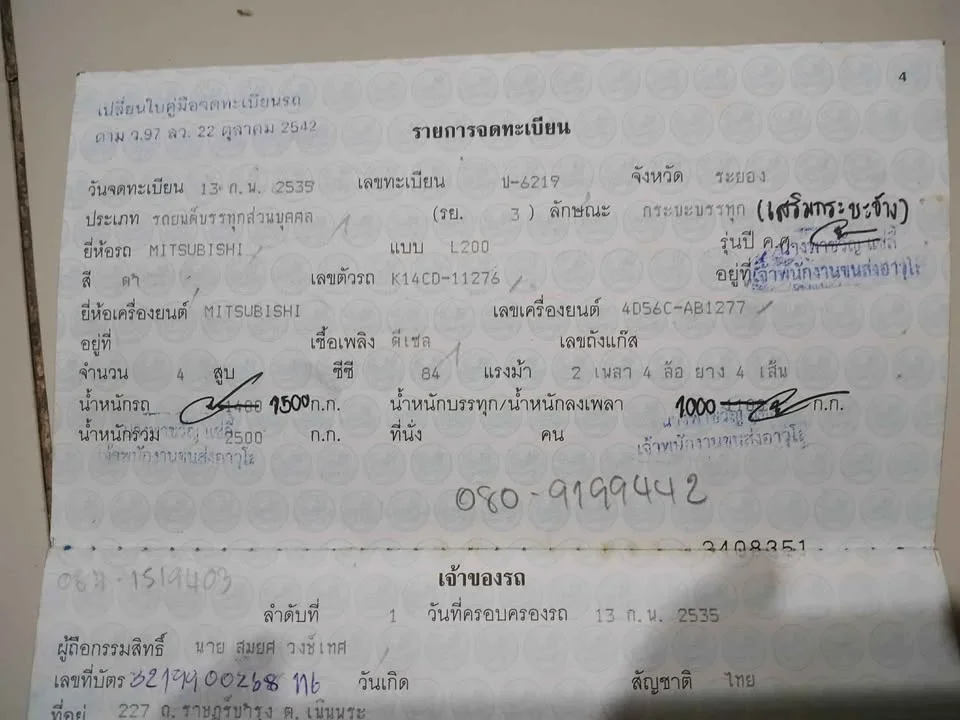 4
เปลี่ยนใบคู่มือจดทะเบียนรถ
ตาม ว.97 ลว. 22 ตุลาคม 2542
รายการจดทะเบียน
วันจดทะเบียน 13 ก.น. 2535 เลขทะเบียน ป-6219 จังหวัด ระยอง
ประเภท รถยนต์บรรทุกส่วนบุคคล (รย. 3 ) ลักษณะ กระบะบรรทุก (เสริมกระบะข้าง)
ยี่ห้อรถ MITSUBISHI แบบ L200 รุ่นปี ค.ศ.
สี ดำ เลขตัวรถ K14CD-11276 อยู่ที่ เจ้าพนักงานขนส่งอาวุโส
ยี่ห้อเครื่องยนต์ MITSUBISHI เลขเครื่องยนต์ 4D56C-AB1277
อยู่ที่ เชื้อเพลิง ดีเซล เลขถังแก๊ส
จำนวน 4 สูบ ซีซี 84 แรงม้า 2 เพลา 4 ล้อ ยาง 4 เส้น
น้ำหนักรถ 1400 1500 ก.ก. น้ำหนักบรรทุก/น้ำหนักลงเพลา 1000 ก.ก.
น้ำหนักรวม 2500 ก.ก. ที่นั่ง คน
เจ้าพนักงานขนส่งอาวุโส เจ้าพนักงานขนส่งอาวุโส
080-9199442
3408351
1519403
เจ้าของรถ
ลำดับที่ 1 วันที่ครอบครองรถ 13 ก.น. 2535
ผู้ถือกรรมสิทธิ์ นาย สุมยศ วงษ์เทศ
เลขที่บัตร 3219900268 วันเกิด สัญชาติ ไทย
ที่อยู่ 227 ถ.ราษฎร์บำรุง ต.เนินพระ